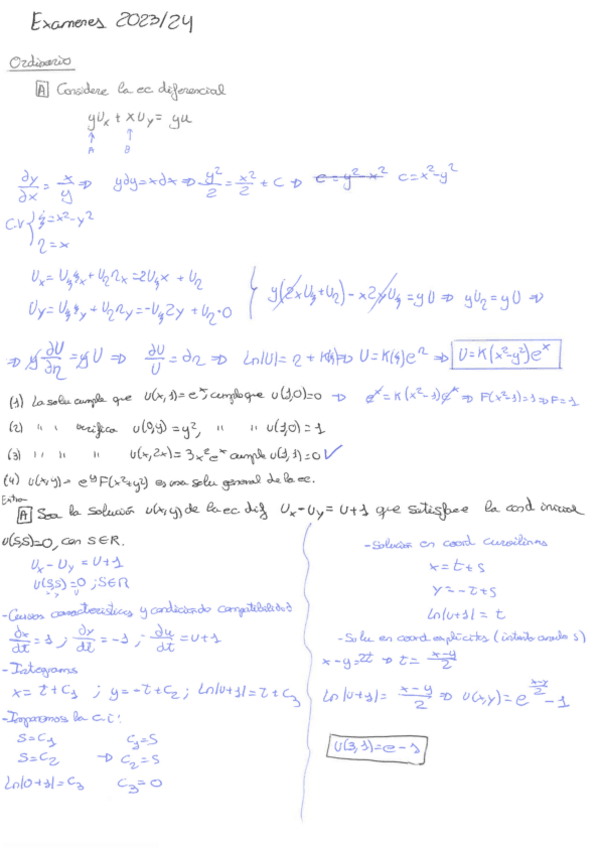 Examenes 2023/24
Ordinario
A Considere la ec diferencial
yUx + xUy = yu
A B
∂y/∂x = x/y ⇒ ydy = xdx ⇒ y²/2 = x²/2 + C ⇒ c = y² - x² c = x² - y²
C.V { ξ = x² - y²
η = x
Ux = Uξ ξx + Uη ηx = 2Uξx + Uη
Uy = Uξ ξy + Uη ηy = -Uξ2y + Uη·0
y(2xUξ + Uη) - x2yUξ = yU ⇒ yUη = yU ⇒
⇒ y ∂U/∂η = yU ⇒ ∂U/U = ∂η ⇒ ln|U| = η + K(ξ) ⇒ U = K(ξ)e^η ⇒ U = K(x²-y²)e^x
(1) La solu cumple que U(x,1) = e^x; cumple que U(1,0)=0 ⇒ e^x = K(x²-1)e^x ⇒ F(x²-1)=1 ⇒ F=1
(2) " " verifica U(0,y) = y², " " U(1,0) = 1
(3) " " " U(x,2x) = 3x²e^x cumple U(1,1) = 0 ✓
(4) U(x,y) = e^y F(x²+y²) es una solu general de la ec.
Extra
A Sea la solución U(x,y) de la ec dif Ux - Uy = U+1 que satisface la cond inicial
U(s,s)=0, con s∈R.
Ux - Uy = U+1
U(s,s) = 0 ; s∈R
- Curvas características y condición de compatibilidad
∂x/∂t = 1 ; ∂y/∂t = -1 ; ∂u/∂t = u+1
- Integramos
x = t + C1 ; y = -t + C2 ; ln|U+1| = t + C3
- Imponemos la c.i:
s = C1 C1 = s
s = C2 ⇒ C2 = s
ln|0+1| = C3 C3 = 0
- Solución en coord curvilíneas
x = t + s
y = -t + s
ln|U+1| = t
- Solu en coord explícitas
x - y = 2t ⇒ t = x-y/2
ln|U+1| = x-y/2 ⇒ U(x,y) = e^(x-y/2) - 1
U(3,1) = e - 1